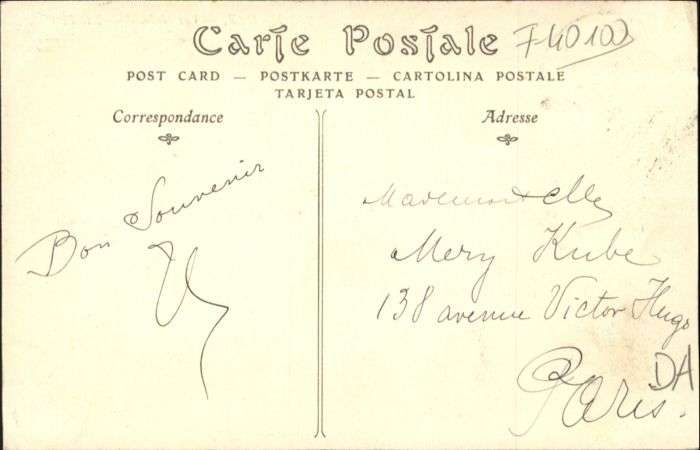 Carte Postale
740102
POST CARD — POSTKARTE — CARTOLINA POSTALE
TARJETA POSTAL
Correspondance
Adresse
Bon Souvenir
Mademoiselle
Mery Kube
138 avenue Victor Hugo
Paris.
DA